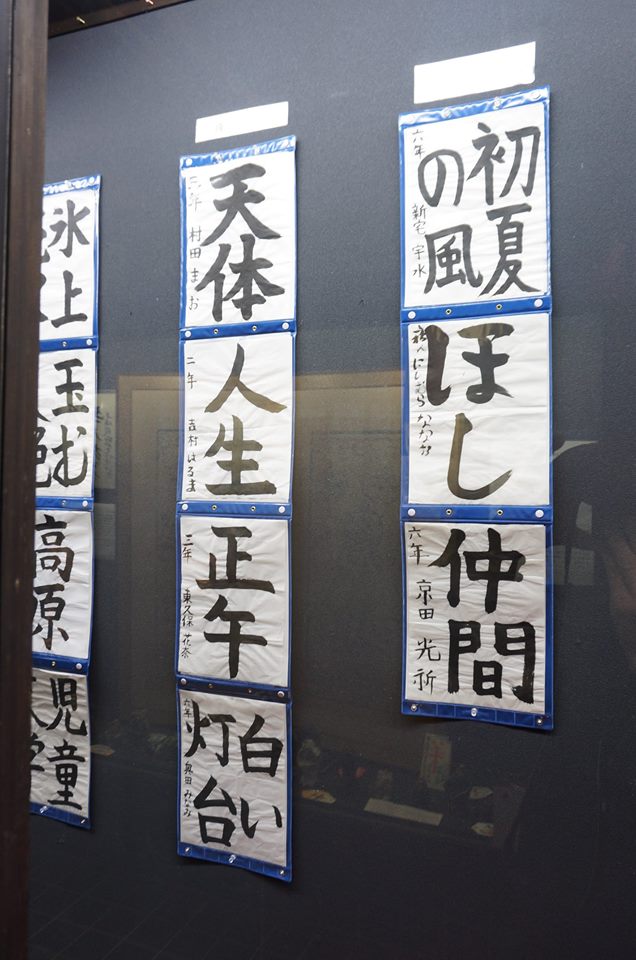 初夏
の風
六年
新宅 宇水
ほし
なかお
仲間
六年
京田 光祈
天体
六年 村田 まお
人生
二年 吉村 はるま
正午
三年 東久保 花奈
白い
灯台
六年 奥田 みなみ
氷上
玉む
高原
児童